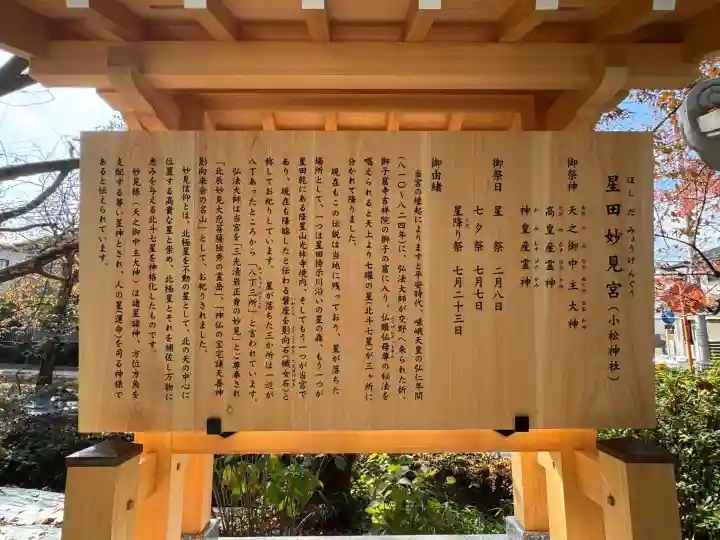 ほしだみょうけんぐう
星田妙見宮（小松神社）
御祭神　天之御中主大神
高皇産霊神
神皇産霊神
御祭日　星祭　二月八日
七夕祭　七月七日
星降り祭　七月二十三日
御由緒
当宮の縁起によりますと平安時代、嵯峨天皇の弘仁年間
（八一〇〜八二四年）に、弘法大師が交野へ来られた折、
獅子窟寺吉祥院の獅子の窟に入り、仏眼仏母尊の秘法を
唱えられると天上より七曜の星（北斗七星）が三ヶ所に
分かれて降りました。
現在もこの伝説は当地に残っており、星が落ちた
場所として、一つは星田傍示川沿いの星の森、もう一つが
星田乾にある降星山光林寺境内、そしてもう一つが当宮で
あり、現在も降臨したと伝わる磐座を影向石（織女石）と
称してお祀りしています。星が落ちた三か所は一辺が
八丁あったところから「八丁三所」と言われています。
弘法大師は当宮を「三光清岩正身の妙見」とご尊奉され
「北辰妙見大悲菩薩独秀の霊岳」、「神仏の宝宅諸天善神
影向来会の名山」として、お祀りされました。
妙見信仰とは、北極星を不動の星として、北の天の中心に
位置する高貴な星と崇め、北極星とそれを補佐し万物に
恵みを与える北斗七星を神格化したものです。
妙見様（天之御中主大神）は諸星諸神、方位方角を
支配する尊い星神とされ、人の星（運命）を司る神様で
あると伝えられています。